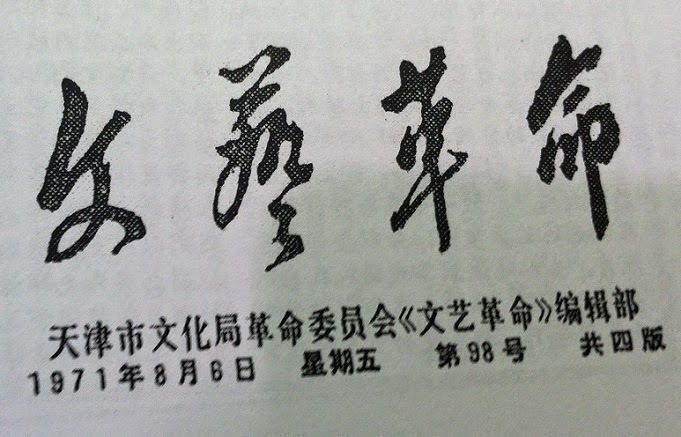 文藝革命
天津市文化局革命委员会《文艺革命》编辑部
1971年8月6日 星期五 第98号 共四版